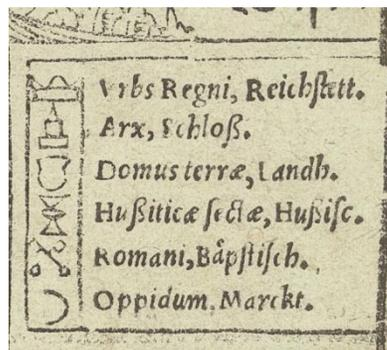 Vrbs Regni, Reichstett.
Arx, Schloß.
Domus terræ, Landh.
Hußiticæ sectæ, Hußisc.
Romani, Båpstisch.
Oppidum. Marckt.